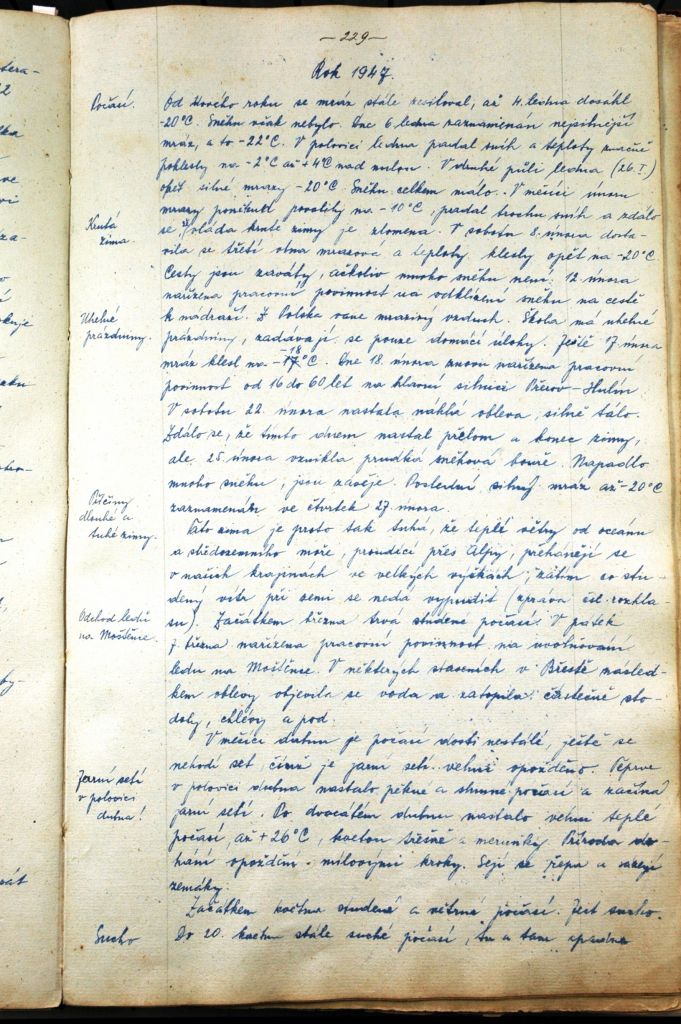 — 229 —
Rok 1947.
Počasí.
Od Nového roku se mráz stále zesiloval, až 4. ledna dosáhl
-20°C. Sněhu však nebylo. Dne 6 ledna zaznamenán nejsilnější
mráz, a to -22°C. V polovici ledna padal sníh a teploty značně
poklesly na -2°C až +4°C nad nulou. V druhé půli ledna (26.I.)
opět silné mrazy -20°C. Sněhu celkem málo. V měsíci únoru
mrazy poněkud povolily na -10°C, padal trochu sníh a zdálo
Krutá
zima.
se, vláda kruté zimy je zlomena. V sobotu 8. února dosta-
vila se třetí vlna mrazová a teploty klesly opět na -20°C
Cesty jsou zaváty, ačkoliv mnoho sněhu není. 12. února
nařízena pracovní povinnost na odklizení sněhu na cestě
Uhelné
prázdniny.
k nádraží. Z Polska vane mrazivý vzduch. Škola má uhelné
prázdniny, zadávají se pouze domácí úlohy. Ještě 17. února
mráz klesl na -18°C. Dne 18. února znovu nařízena pracovní
povinnost od 16 do 60 let na hlavní silnici Přerov - Hulín.
V sobotu 22. února nastala náhlá obleva, silně tálo.
Zdálo se, že tímto dnem nastal přelom a konec zimy,
ale 25. února vznikla prudká sněhová bouře. Napadlo
mnoho sněhu, jsou závěje. Poslední silný mráz až -20°C
Příčiny
dlouhé a
tuhé zimy.
zaznamenán ve čtvrtek 27. února.
Tato zima je proto tak tuhá, že teplé větry od oceanu
a středozemního moře, proudící přes Alpy, přehánějí se
v našich krajinách ve velkých výškách, zatím co stu-
dený vítr při zemi se nedá vypudit (zpráva čsl. rozhla-
Odchod ledu
na Moštěnce.
su). Začátkem března trvá studené počasí. V pátek
7. března nařízena pracovní povinnost na uvolňování
ledu na Moštěnce. V některých staveních v Břestě násled-
kem oblevy objevila se voda a zatopila částečně sto-
doly, chlévy a pod.
V měsíci dubnu je počasí dosti nestálé, ještě se
Jarní setí
v polovici
dubna!
nehodí set, čímž je jarní setí velmi opožděno. Teprve
v polovici dubna nastalo pěkné a slunné počasí a začíná
jarní setí. Po dvacátém dubnu nastalo velmi teplé
počasí, až +26°C, kvetou třešně a meruňky. Příroda do-
hání opoždění mílovými kroky. Sejí se řepa a sázejí
zemáky.
Začátkem května studené a větrné počasí. Jest sucho.
Sucho
Do 20. května stále suché počasí, tu a tam